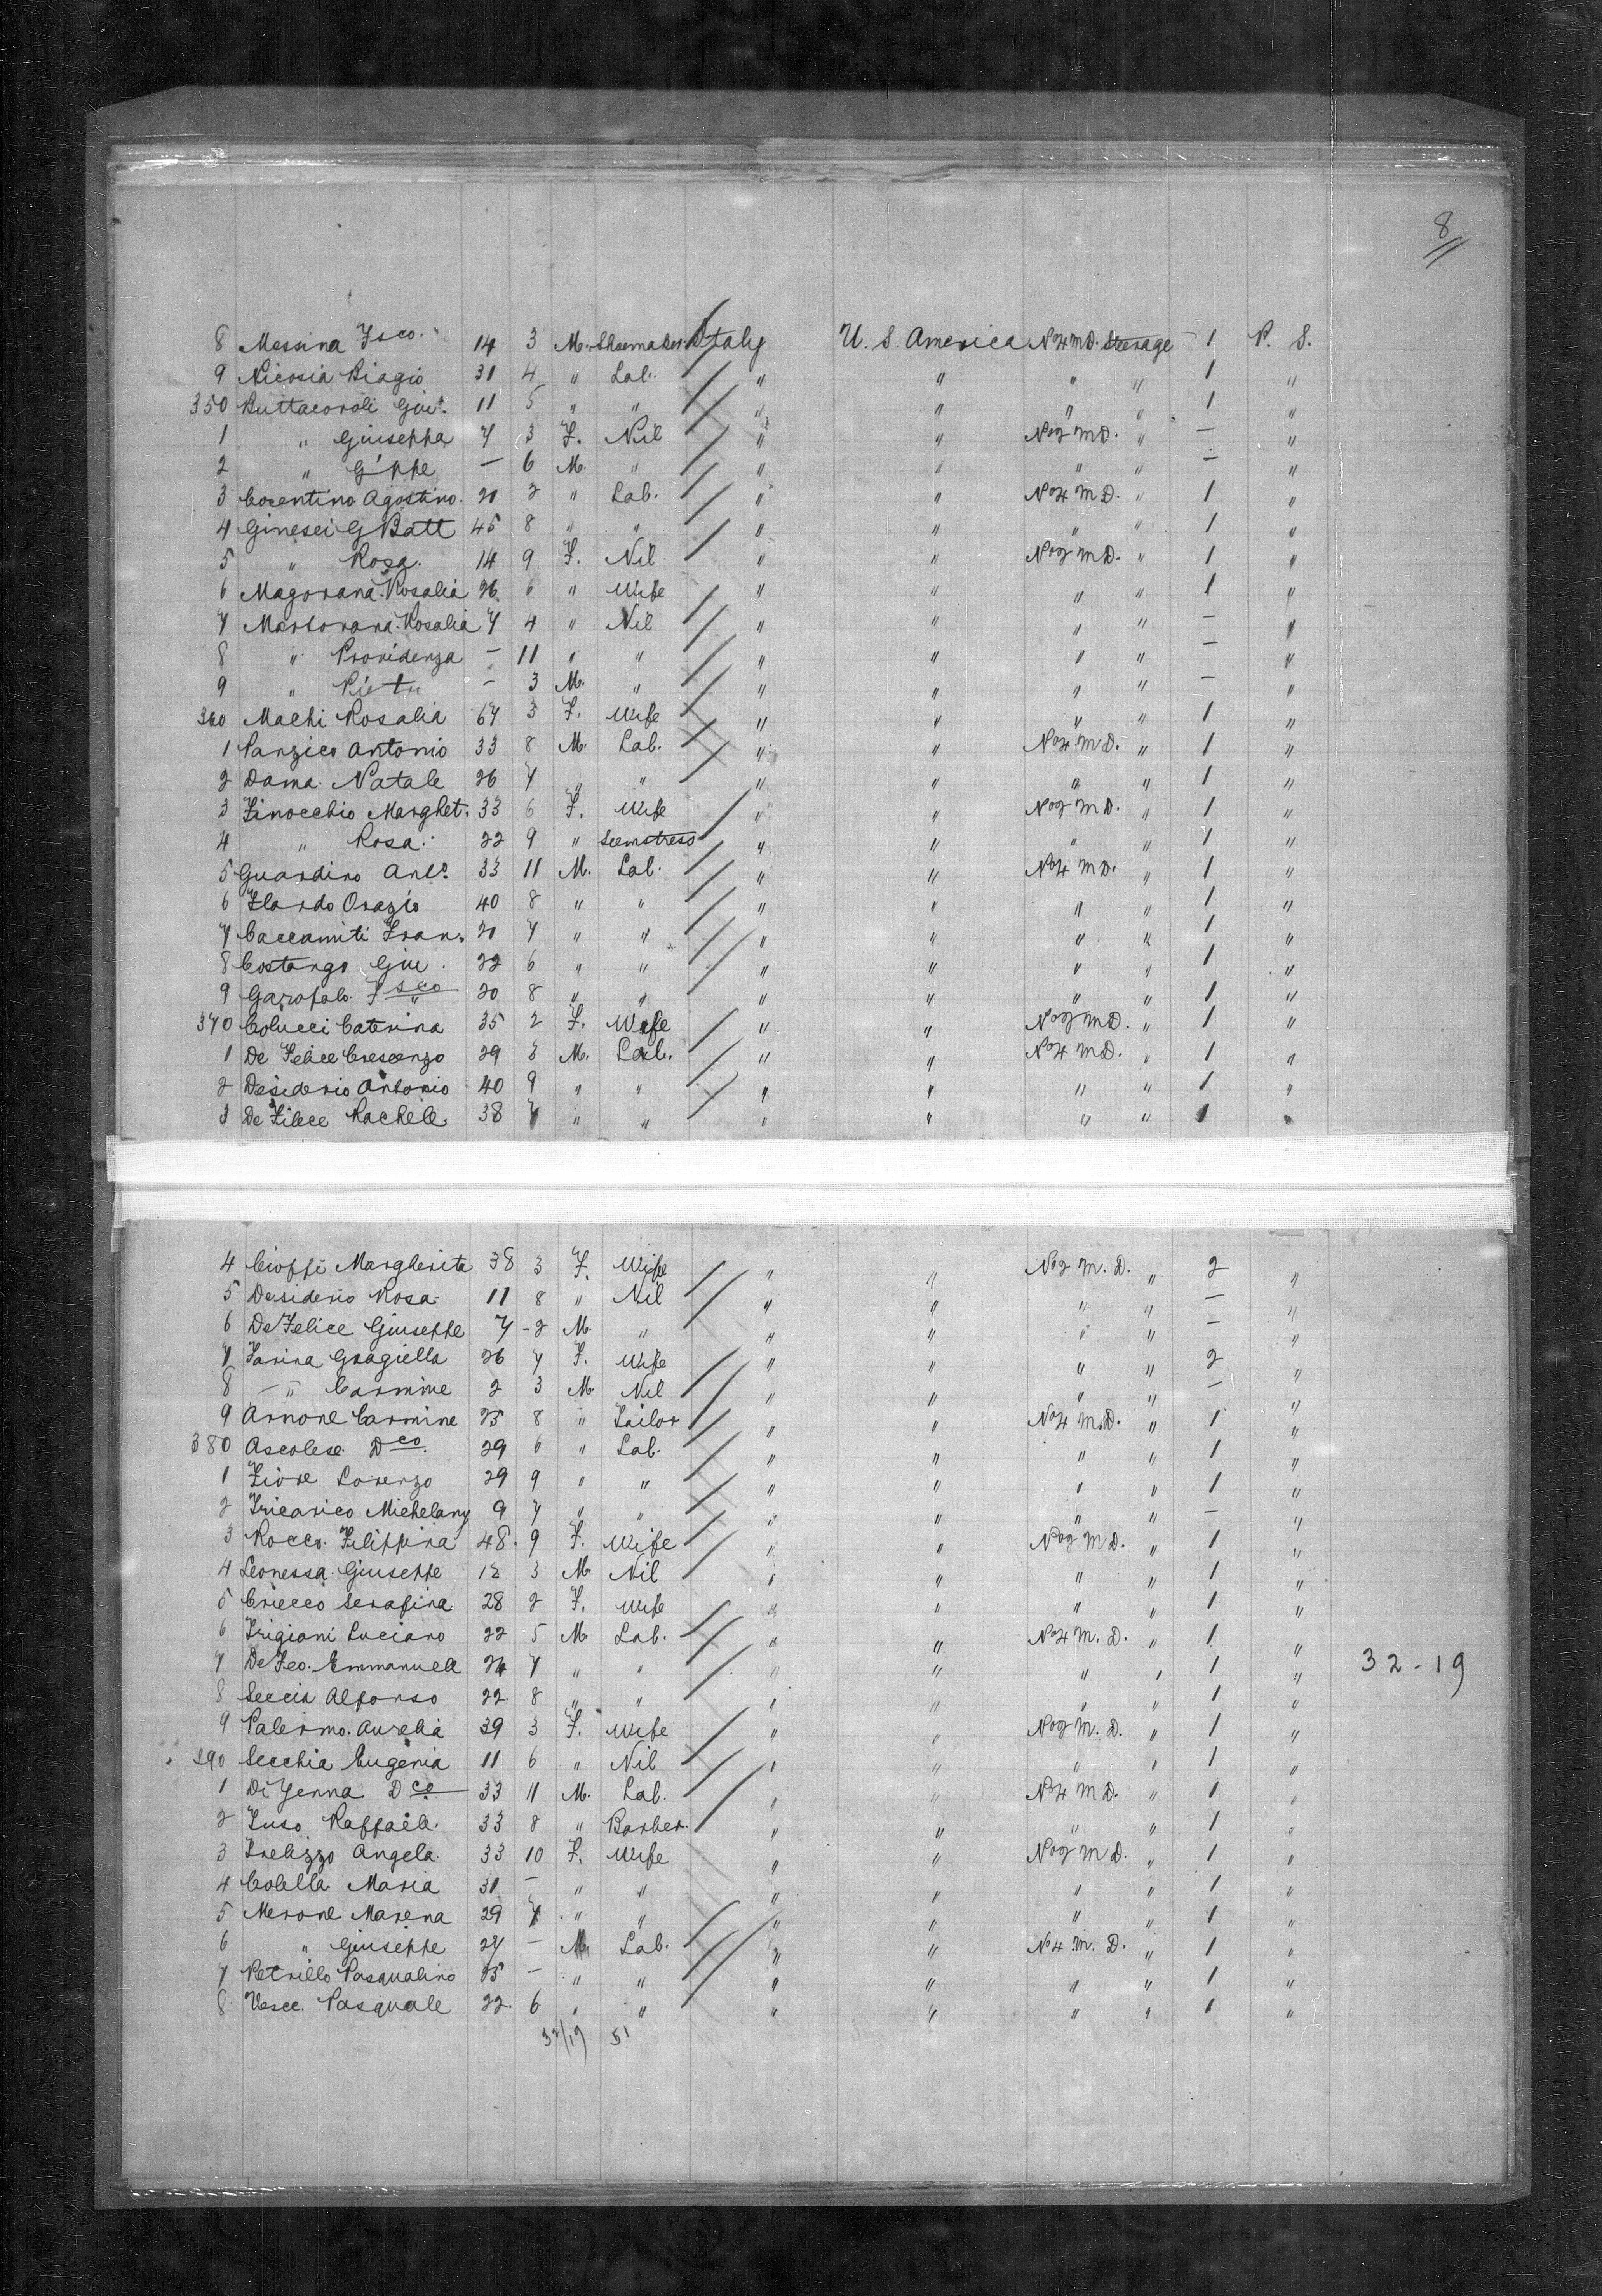 8
8 Messina Fsco. 14 3 M. Shoemaker Italy U. S. America No 4 M D. Steerage 1 P. S.
9 Nicosia Biagio 31 4 " Lab. " " " " 1 "
350 Buttacovoli Giuse. 11 5 " " " " " " 1 "
1 " Giuseppa 7 3 F. Nil " " No 2 M D. " – "
2 " G'ppe – 6 M. " " " " " – "
3 Cosentino Agostino. 21 2 " Lab. " " No 4 M D. " 1 "
4 Ginesei G Batt 45 8 " " " " " " 1 "
5 " Rosa. 14 9 F. Nil " " No 2 M D. " 1 "
6 Magorana. Rosalia 26 6 " Wife " " " " 1 "
7 Martorana. Rosalia 7 4 " Nil " " " " – "
8 " Providenza – 11 " " " " " " – "
9 " Pietro – 3 M. " " " " " – "
360 Machi Rosalia 67 3 F. Wife " " " " 1 "
1 Panzico Antonio 33 8 M. Lab. " " No 4 M D. " 1 "
2 Dama. Natale 26 7 " " " " " " 1 "
3 Finocchio Marghet. 33 6 F. Wife " " No 2 M D. " 1 "
4 " Rosa. 22 9 " Seemstress " " " " 1 "
5 Guardino Anto. 33 11 M. Lab. " " No 4 M D. " 1 "
6 Ilardo Orazio 40 8 " " " " " " 1 "
7 Caccamiti Fran. 21 7 " " " " " " 1 "
8 Costanzo Giu. 22 6 " " " " " " 1 "
9 Garofalo. Fsco 20 8 " " " " " " 1 "
370 Colucci Caterina 35 2 F. Wife " " No 2 M D. " 1 "
1 De Felice Crescenzo 29 3 M. Lab. " " No 4 M D. " 1 "
2 Desiderio Antonio 40 9 " " " " " " 1 "
3 De Filece Rachele 38 7 " " " " " " 1 "
4 Cioffi Margherita 38 3 F. Wife " " No 2 M. D. " 2 "
5 Desiderio Rosa 11 8 " Nil " " " " – "
6 De Felice Giuseppe 7 - 2 M. " " " " " – "
7 Farina Graziella 26 7 F. Wife " " " " 2 "
8 – " Carmine 2 3 M. Nil " " " " – "
9 Arnone Carmine 25 8 " Tailor " " No 4 M.D. " 1 "
380 Ascolese Dco. 29 6 " Lab. " " " " 1 "
1 Fiore Lorenzo 29 9 " " " " " " 1 "
2 Tricarico Michelang 9 7 " " " " " " – "
3 Rocco. Filippina 48. 9 F. Wife " " No 2 M D. " 1 "
4 Leonessa Giuseppe 12 3 M Nil " " " " 1 "
5 Criecco Serafina 28 2 F. Wife " " " " 1 "
6 Frigiani Luciano 22 5 M Lab. " " No 4 M. D. " 1 "
7 De Feo. Emmanuele 24 7 " " " " " " 1 " 32-19
8 Seccia Alfonso 22 8 " " " " " " 1 "
9 Palermo. Aurelia 39 3 F. Wife " " No 2 M. D. " 1 "
390 Secchia Eugenia 11 6 " Nil " " " " 1 "
1 Di Jenna Dco. 33 11 M. Lab. " " No 4 M D. " 1 "
2 Fuso Raffaele. 33 8 " Barber " " " " 1 "
3 Frelizzo Angela 33 10 F. Wife " " No 2 M D. " 1 "
4 Colella Maria 31 – " " " " " " 1 "
5 Merone Marena 29 7 " " " " " " 1 "
6 " Giuseppe 27 – M. Lab. " " No 4 M. D. " 1 "
7 Petrillo Pasqualino 25 – " " " " " " 1 "
8 Vesce. Pasquale 22. 6 " " " " " " 1 "
32/19 51